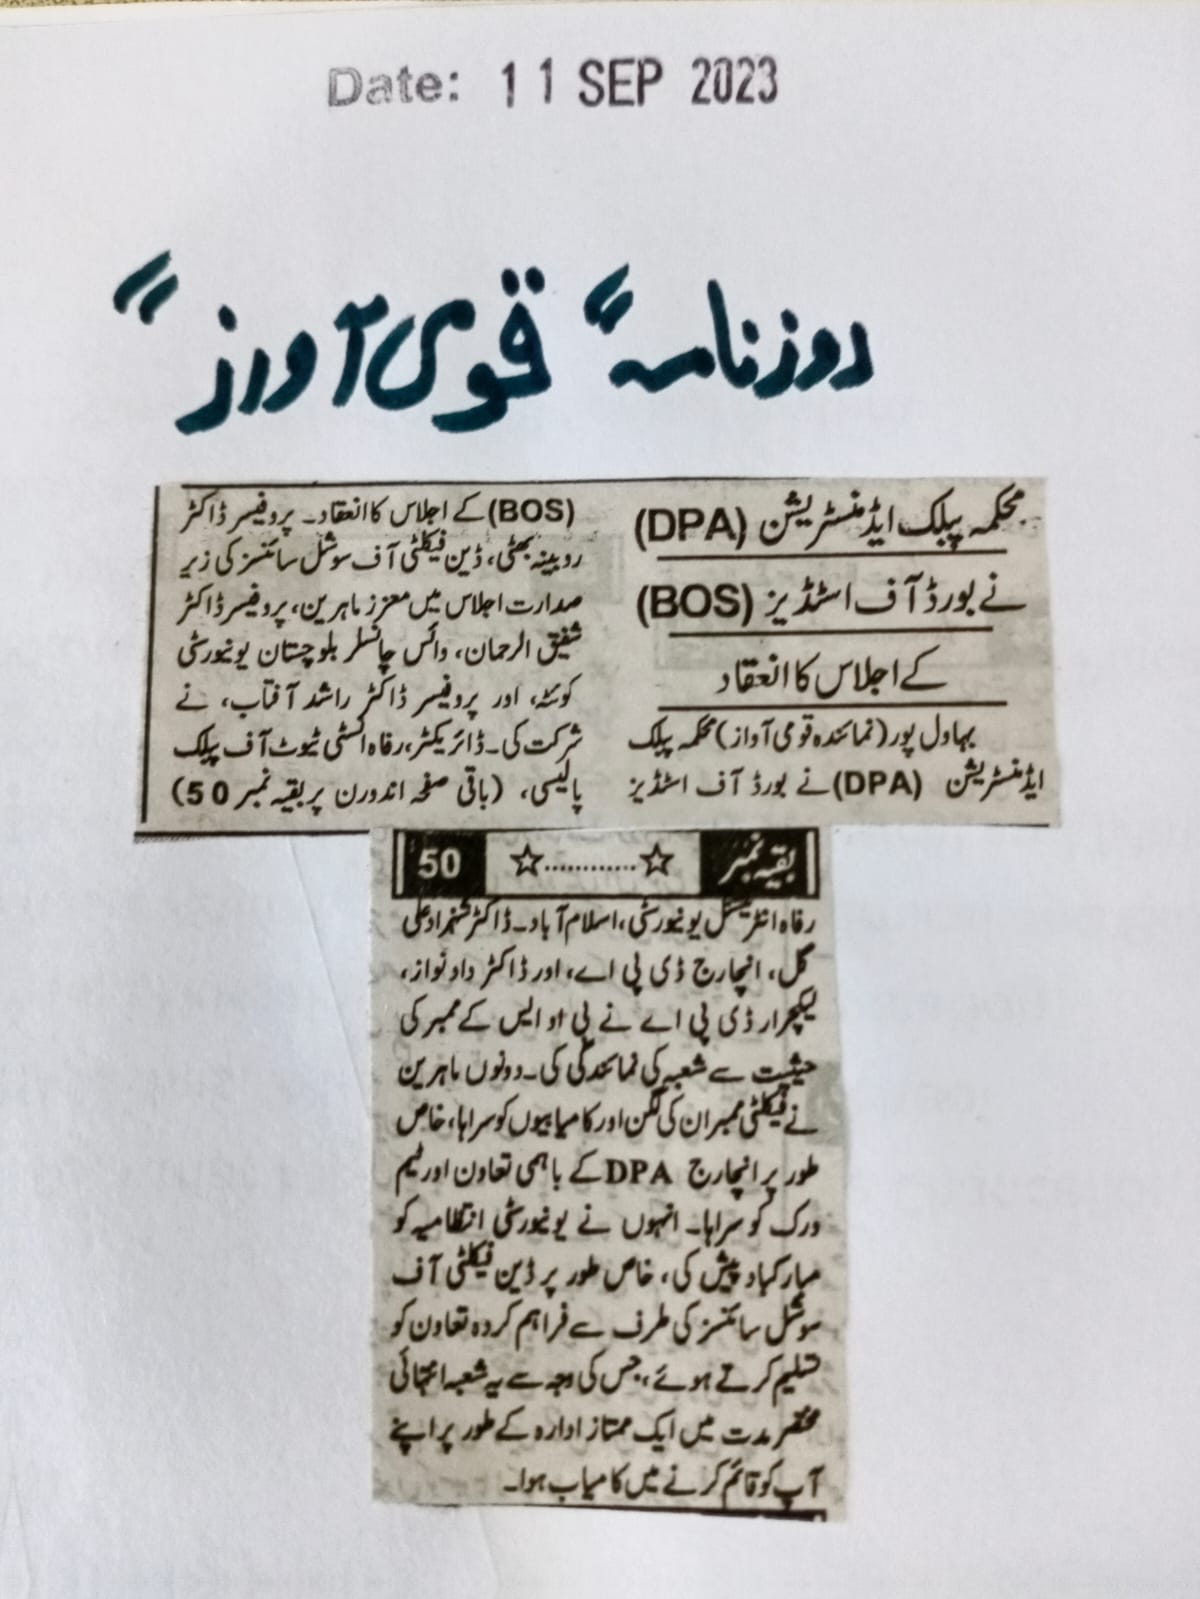 Date: 11 SEP 2023
روزنامہ "قومی آواز"
محکمہ پبلک ایڈمنسٹریشن (DPA)
نے بورڈ آف اسٹڈیز (BOS)
کے اجلاس کا انعقاد
بہاول پور (نمائندہ قومی آواز) محکمہ پبلک
ایڈمنسٹریشن (DPA) نے بورڈ آف اسٹڈیز
(BOS) کے اجلاس کا انعقاد۔ پروفیسر ڈاکٹر
روبینہ بھٹی، ڈین فیکلٹی آف سوشل سائنسز کی زیر
صدارت اجلاس میں معزز ماہرین، پروفیسر ڈاکٹر
شفیق الرحمان، وائس چانسلر بلوچستان یونیورسٹی
کوئٹہ، اور پروفیسر ڈاکٹر راشد آفتاب، نے
شرکت کی۔ ڈائریکٹر، رفاہ انسٹی ٹیوٹ آف پبلک
پالیسی، (باقی صفحہ اندورن پر بقیہ نمبر 50)
بقیہ نمبر ☆............☆ 50
رفاہ انٹرنیشنل یونیورسٹی، اسلام آباد۔ ڈاکٹر شہزاد علی
گل، انچارج ڈی پی اے، اور ڈاکٹر داد نواز،
لیکچرار ڈی پی اے نے بی او ایس کے ممبر کی
حیثیت سے شعبہ کی نمائندگی کی۔ دونوں ماہرین
نے فیکلٹی ممبران کی لگن اور کامیابیوں کو سراہا، خاص
طور پر انچارج DPA کے باہمی تعاون اور ٹیم
ورک کو سراہا۔ انہوں نے یونیورسٹی انتظامیہ کو
مبارکباد پیش کی، خاص طور پر ڈین فیکلٹی آف
سوشل سائنسز کی طرف سے فراہم کردہ تعاون کو
تسلیم کرتے ہوئے، جس کی وجہ سے یہ شعبہ انتہائی
مختصر مدت میں ایک ممتاز ادارہ کے طور پر اپنے
آپ کو قائم کرنے میں کامیاب ہوا۔